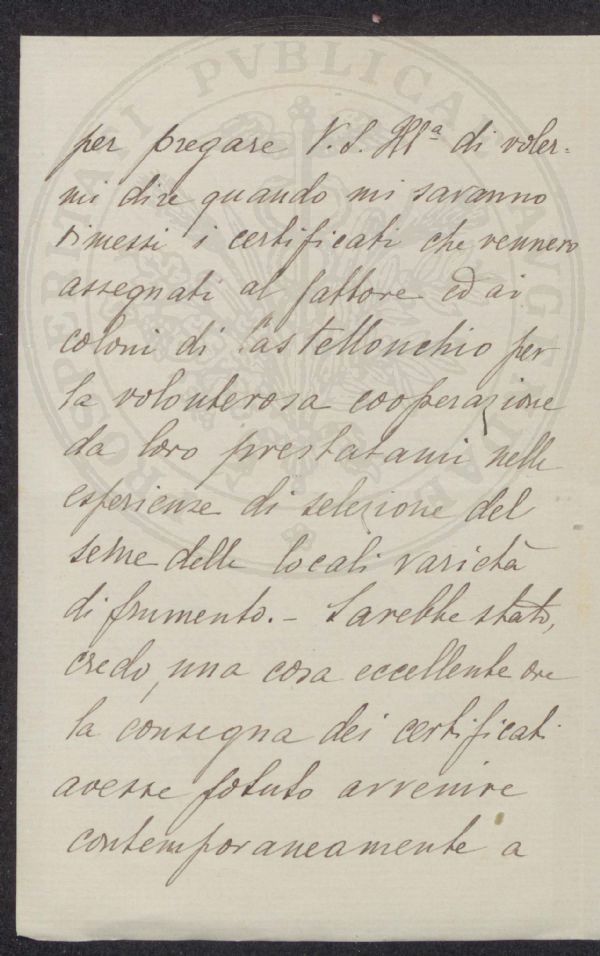 PROSPERITATI PVBLICAE AVGENDAE
per pregare V. S. Ill.ª di voler=
mi dire quando mi saranno
rimessi i certificati che vennero
assegnati al fattore ed ai
coloni di Castellonchio per
la volonterosa cooperazione
da loro prestatami nelle
esperienze di selezione del
seme delle locali varietà
di frumento. – Sarebbe stato,
credo, una cosa eccellente ove
la consegna dei certificati
avesse potuto avvenire
contemporaneamente a